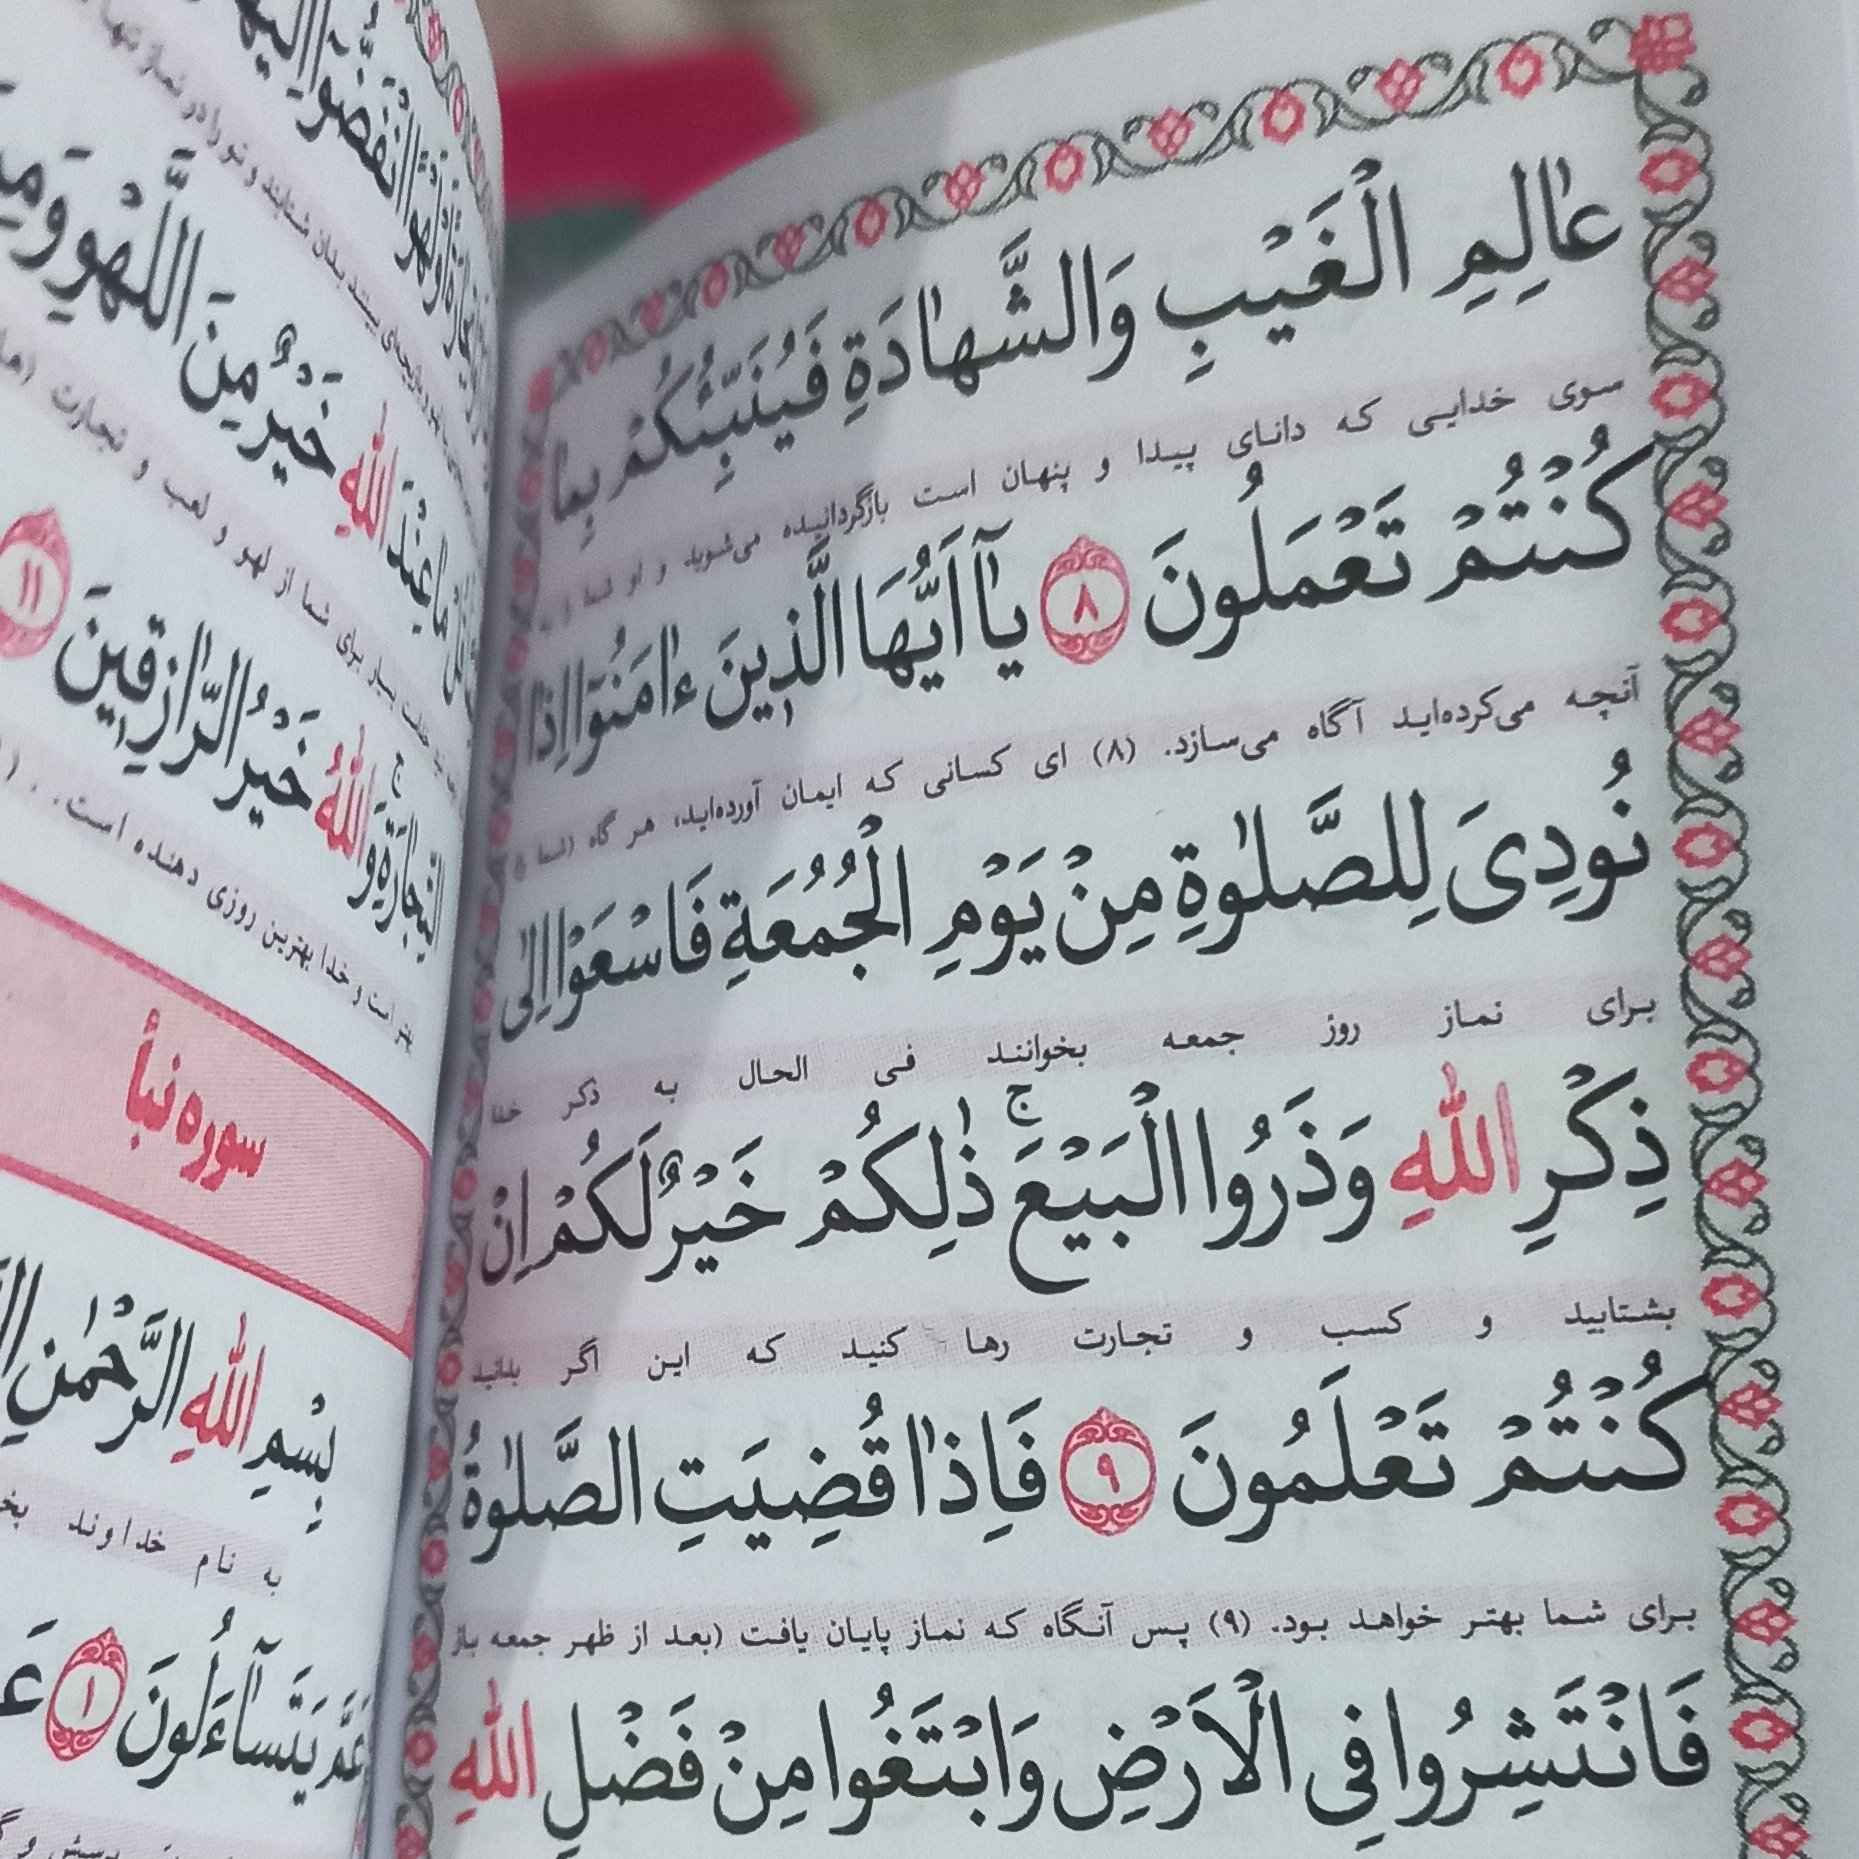 عٰالِمِ الْغَيْبِ وَالشَّهٰادَةِ فَيُنَبِّئُكُمْ بِمٰا
سوی خدایی که دانای پیدا و پنهان است بازگردانیده می‌شوید و او شما را به
كُنْتُمْ تَعْمَلُونَ ٨ يٰآ اَيُّهَا الَّذٖينَ ءٰامَنُوٓا اِذٰا
آنچه می‌کرده‌اید آگاه می‌سازد. (۸) ای کسانی که ایمان آورده‌اید، هر گاه (شما را)
نُودِىَ لِلصَّلٰوةِ مِنْ يَوْمِ الْجُمُعَةِ فَاسْعَوْا اِلىٰ
برای نماز روز جمعه بخوانند فی الحال به ذکر خدا
ذِكْرِ اللّٰهِ وَذَرُوا الْبَيْعَ ۚ ذٰلِكُمْ خَيْرٌ لَكُمْ اِنْ
بشتابید و کسب و تجارت رها کنید که این اگر بدانید
كُنْتُمْ تَعْلَمُونَ ٩ فَاِذٰا قُضِيَتِ الصَّلٰوةُ
برای شما بهتر خواهد بود. (۹) پس آنگاه که نماز پایان یافت (بعد از ظهر جمعه باز
فَانْتَشِرُوا فِى الْاَرْضِ وَابْتَغُوا مِنْ فَضْلِ اللّٰهِ
انْفَضُّوٓا اِلَيْهٰا
خَيْرٌ مِنَ اللَّهْوِ وَمِنَ
مٰا عِنْدَ اللّٰهِ
شما از لهو و لعب و تجارت
التِّجٰارَةِ ۚ وَاللّٰهُ خَيْرُ الرّٰازِقٖينَ ١١
بهتر است و خدا بهترین روزی دهنده است.
سوره نبأ
بِسْمِ اللّٰهِ الرَّحْمٰنِ
به نام خداوند
عَمَّ يَتَسٰآءَلُونَ ١
پرسش و